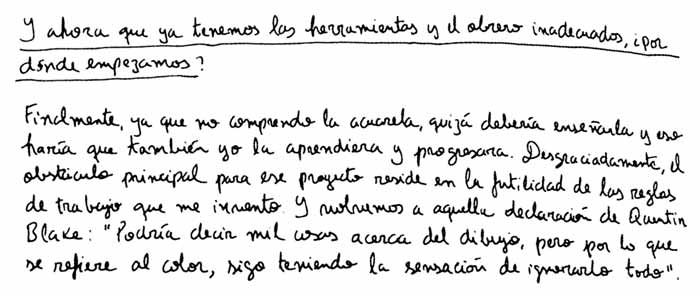 Y ahora que ya tenemos las herramientas y el obrero inadecuados, ¿por
dónde empezamos?
Finalmente, ya que no comprendo la acuarela, quizá debería enseñarla y eso
haría que también yo la aprendiera y progresara. Desgraciadamente, el
obstáculo principal para ese proyecto reside en la futilidad de las reglas
de trabajo que me invento. Y volvemos a aquella declaración de Quentin
Blake: "Podría decir mil cosas acerca del dibujo, pero por lo que
se refiere al color, sigo teniendo la sensación de ignorarlo todo".